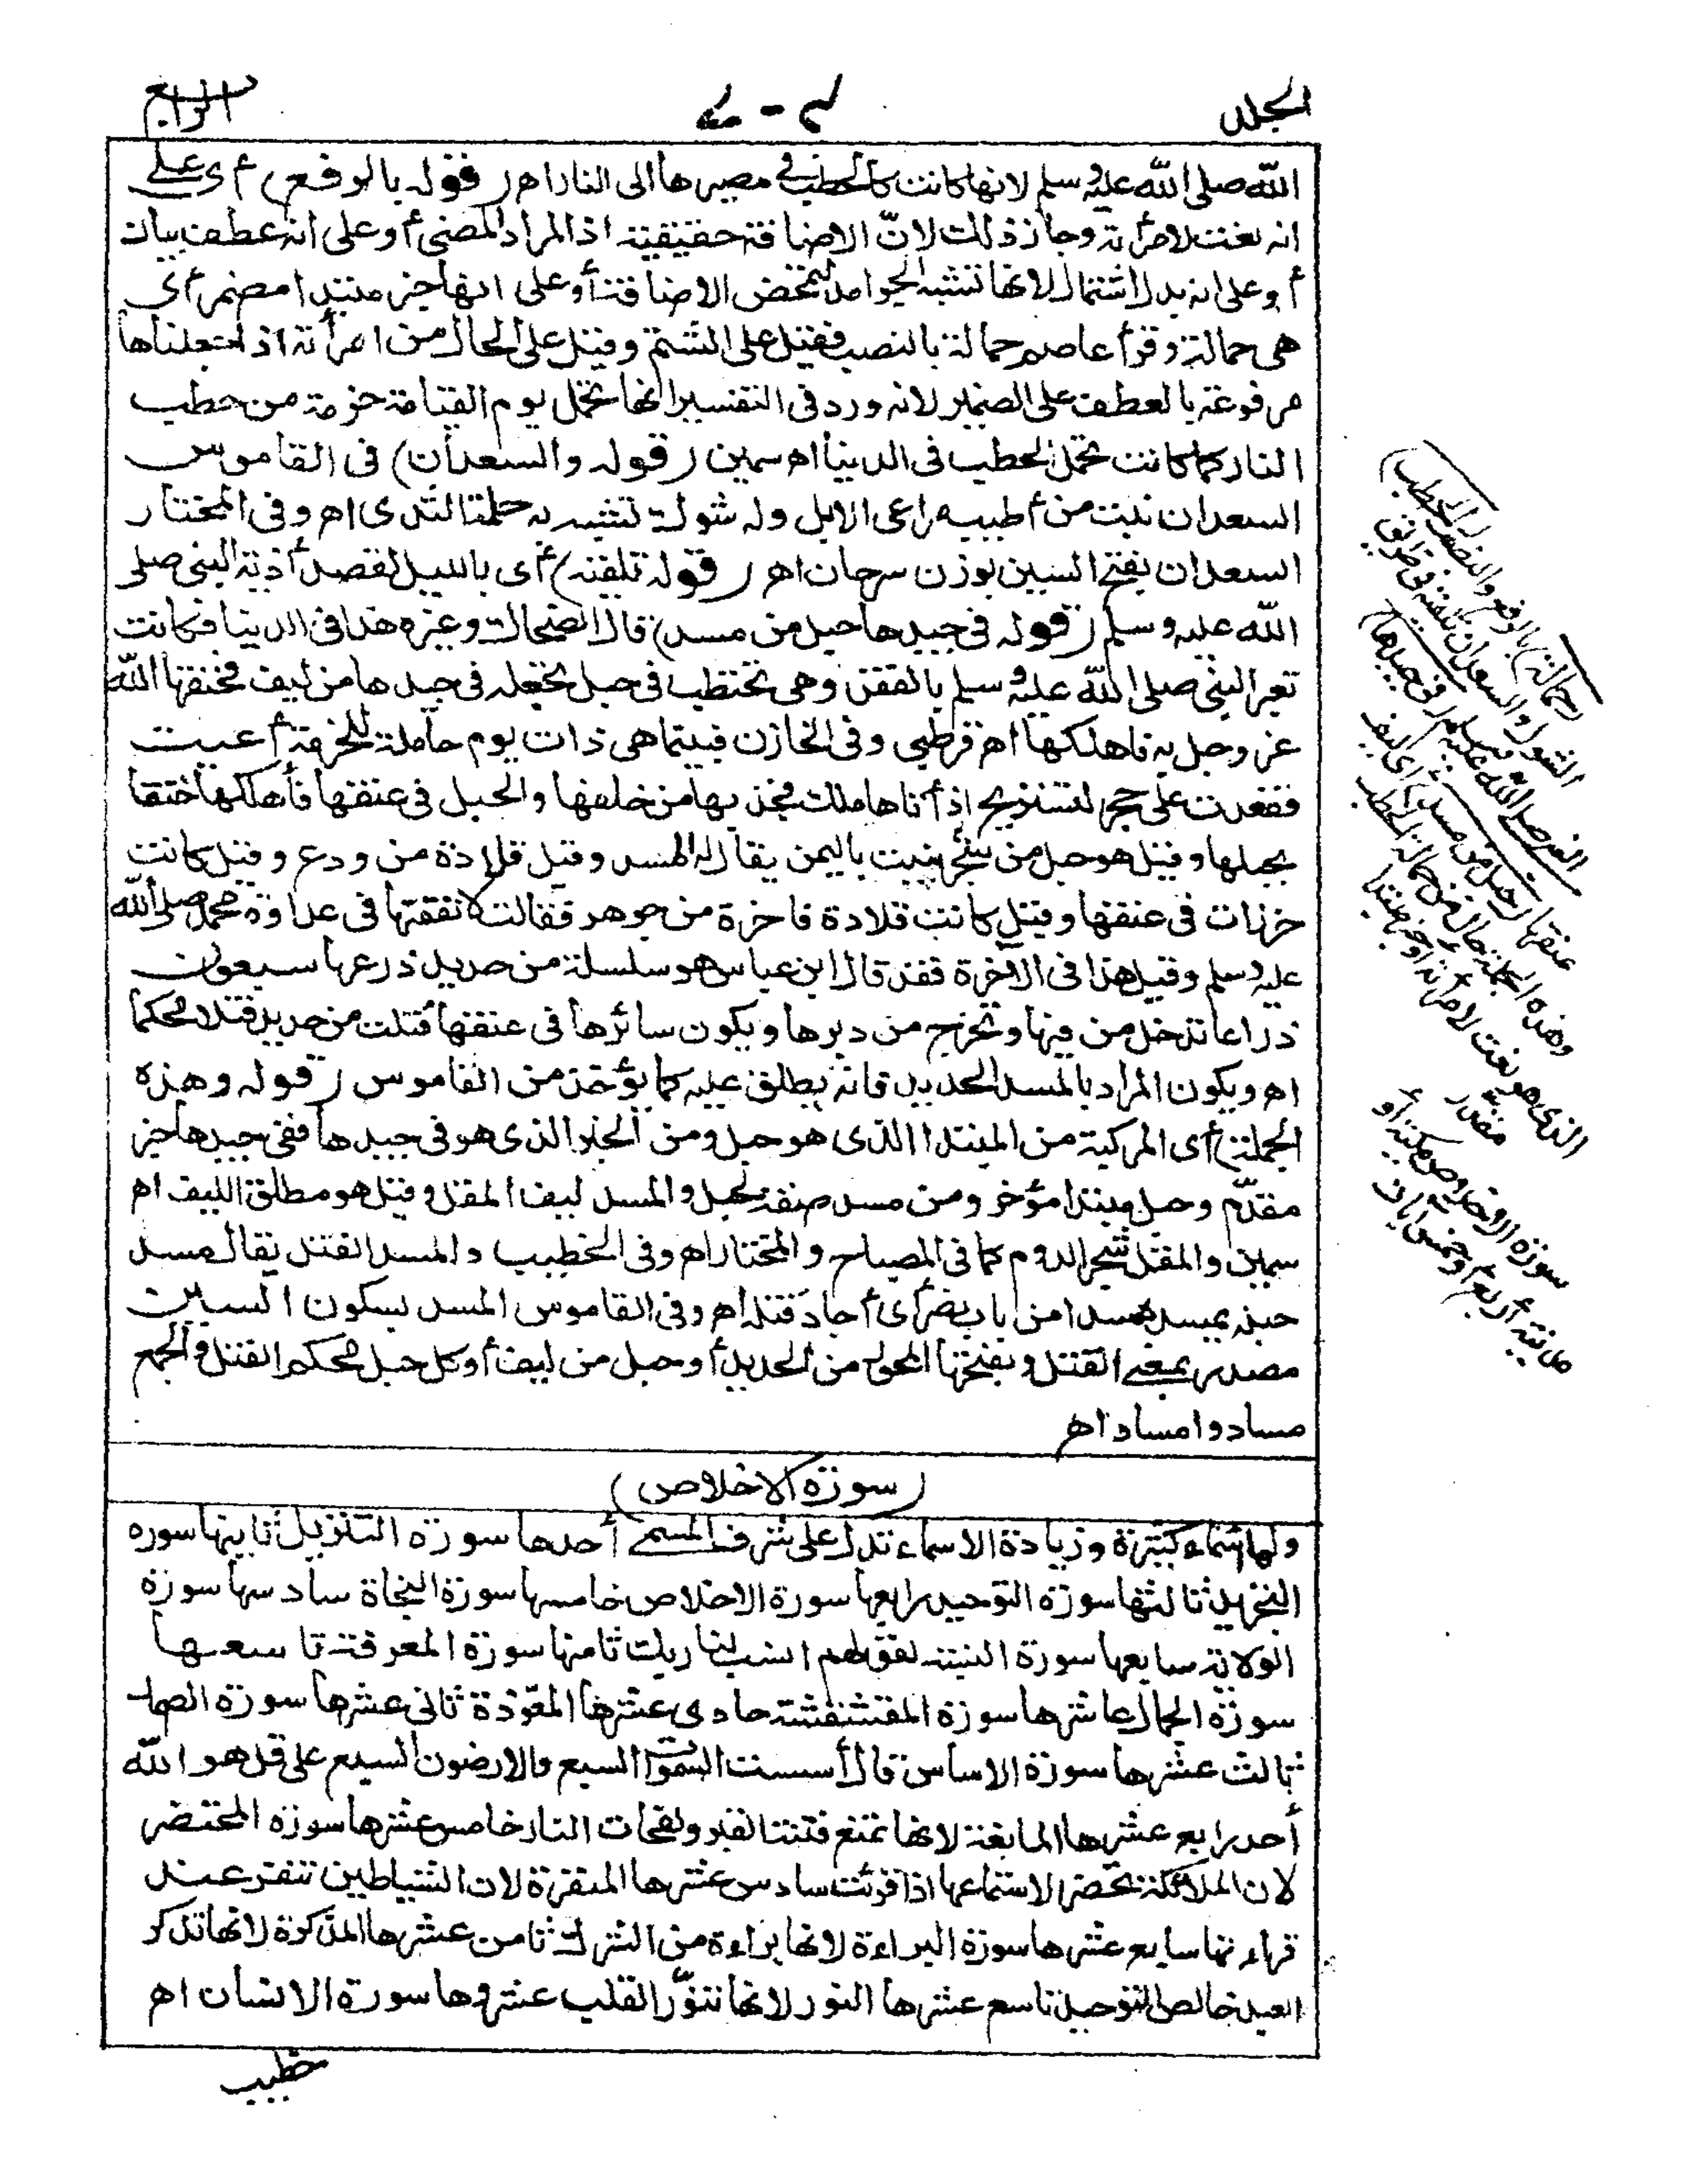 المجلد
٦٠٧
الرابع
الله صلى الله عليه وسلم لانها كانت كالحطب في مصيرها الى النار اهـ (قوله بالرفع) أى على
انه نعت لامرأته وجاز ذلك لانّ الاضافة حقيقية اذ المراد المضى أو على انه عطف بيان
أو على انه بدل اشتمال لانها تشبه الجوامد لتمحض الاضافة أو على انها خبر مبتدا مضمر أى
هى حمالة وقرأ عاصم حمالة بالنصب فقيل على الشتم وقيل على الحال من امرأته اذا جعلناها
مرفوعة بالعطف على الضمير لانه ورد فى التفسير انها تحمل يوم القيامة حزمة من حطب
النار كما كانت تحمل الحطب فى الدنيا اهـ سمين (قوله والسعدان) فى القاموس
السعدان نبت من أطيب مراعى الابل وله شوك تشبه به حلمة الثدى اهـ وفى المختار
السعدان بفتح السين بوزن سرحان اهـ (قوله تلقيه) أى بالليل لقصد أذية النبى صلى
الله عليه وسلم (قوله فى جيدها حبل من مسد) قال الضحاك وغيره هذا فى الدنيا فكانت
تعير النبى صلى الله عليه وسلم بالفقر وهى تحتطب فى حبل تجعله فى جيدها من ليف فخنقها الله
عز وجل به فاهلكها اهـ قرطبى وفى الخازن فبينما هى ذات يوم حاملة للحزمة أعيت
فقعدت على حجر لتستريح اذ أتاها ملك فجذبها من خلفها والحبل فى عنقها فأهلكها خنقا
بحبلها وقيل هو حبل من شجر ينبت باليمن يقال له المسد وقيل قلادة من ودع وقيل كانت
خرزات فى عنقها وقيل كانت قلادة فاخرة من جوهر فقالت لانفقنها فى عداوة محمد صلى الله
عليه وسلم وقيل هذا فى الآخرة فقد قال ابن عباس هو سلسلة من حديد ذرعها سبعون
ذراعا تدخل من فيها وتخرج من دبرها ويكون سائرها فى عنقها فتلت من حديد فتلا محكما
اهـ ويكون المراد بالمسد الحديد فانه يطلق عليه كما يؤخذ من القاموس (قوله وهذه
الجملة) أى المركبة من المبتدا الذى هو حبل ومن الخبر الذى هو فى جيدها ففى جيدها خبر
مقدّم وحبل مبتدا مؤخر ومن مسد صفة لحبل والمسد ليف المقل وقيل هو مطلق الليف اهـ
سمين والمقل شجر الدوم كما فى المصباح والمختار اهـ وفى الخطيب والمسد الفتل يقال مسد
حبله يمسده مسدا من باب نصر أى أجاد فتله اهـ وفى القاموس المسد بسكون السين
مصدر بمعنى الفتل وبفتحها المحور من الحديد أو حبل من ليف أو كل حبل محكم الفتل والجمع
مساد وامساد اهـ
(سورة الاخلاص)
ولها أسماء كثيرة وزيادة الاسماء تدل على شرف المسمى أحدها سورة التنزيل ثانيها سورة
التجريد ثالثها سورة التوحيد رابعها سورة الاخلاص خامسها سورة النجاة سادسها سورة
الولاية سابعها سورة النسبة لقولهم انسب لنا ربك ثامنها سورة المعرفة تاسعها
سورة الجمال عاشرها سورة المقشقشة حادى عشرها المعوّذة ثانى عشرها سورة الصمد
ثالث عشرها سورة الاساس قال أسست السموات السبع والارضون السبع على قل هو الله
أحد رابع عشرها المانعة لانها تمنع فتنة القبر ولفحات النار خامس عشرها سورة المحتضر
لان الملائكة تحضر لاستماعها اذا قرئت سادس عشرها المنفرة لان الشياطين تنفر عند
قراءتها سابع عشرها سورة البراءة لانها براءة من الشرك ثامن عشرها المذكرة لانها تذكر
العبد خالص التوحيد تاسع عشرها النور لانها تنوّر القلب عشروها سورة الانسان اهـ
خطيب
(حمالة) بالرفع والنصب (الحطب)
الشوك والسعدان تلقيه فى طريق
النبى صلى الله عليه وسلم (فى جيدها)
عنقها (حبل من مسد) أى ليف
وهذه الجملة حال من حمالة الحطب
الذى هو نعت لامرأته أو خبر مبتدا
مقدّر
سورة الاخلاص مكية أو
مدنية أربع أو خمس آيات